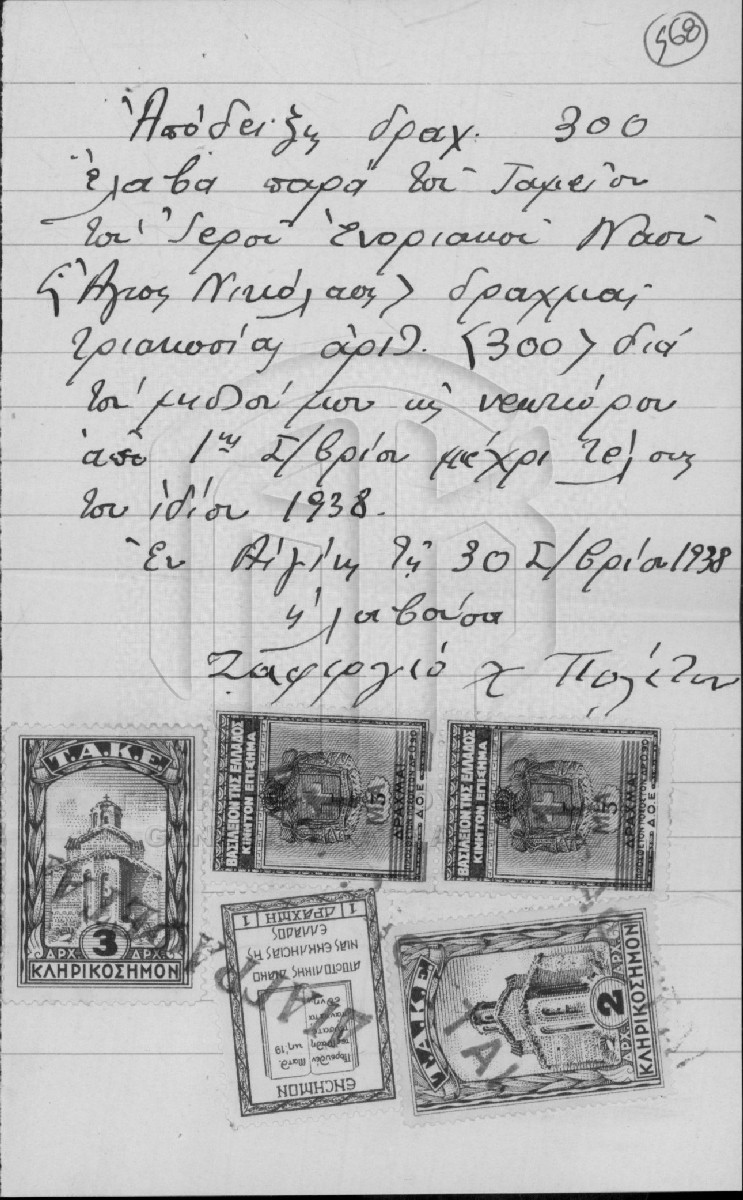 568
Ἀπόδειξις δραχ. 300
Ἔλαβα παρά τοῦ Ταμείου
τοῦ Ἱεροῦ Ἐνοριακοῦ Ναοῦ
"Ἅγιος Νικόλαος" δραχμάς
τριακοσίας ἀριθ. (300) διά
τοῦ μισθοῦ μου ὡς νεωκόρου
ἀπό 1ης Σ/βρίου μέχρι τέλους
του ἰδίου 1938.
Ἐν Αἰγίνῃ τῇ 30 Σ/βρίου 1938
ἡ λαβοῦσα
Ζαφεργιό χ Πολίτου
Τ.Α.Κ.Ε
3
ΔΡΧ. ΔΡΧ.
ΚΛΗΡΙΚΟΣΗΜΟΝ
ΒΑΣΙΛΕΙΟΝ ΤΗΣ ΕΛΛΑΔΟΣ
ΚΙΝΗΤΟΝ ΕΠΙΣΗΜΑ
5
ΔΡΑΧΜΑΙ
Δ.Ο.Ε.
ΒΑΣΙΛΕΙΟΝ ΤΗΣ ΕΛΛΑΔΟΣ
ΚΙΝΗΤΟΝ ΕΠΙΣΗΜΑ
5
ΔΡΑΧΜΑΙ
Δ.Ο.Ε.
ΕΝΣΗΜΟΝ
ΑΠΟΣΤΟΛΙΚΗΣ ΔΙΑΚΟ
ΝΙΑΣ ΕΚΚΛΗΣΙΑΣ ΤΗΣ
ΕΛΛΑΔΟΣ
1 ΔΡΑΧΜΗ 1
Τ.Α.Κ.Ε
2
ΔΡΧ. ΔΡΧ.
ΚΛΗΡΙΚΟΣΗΜΟΝ